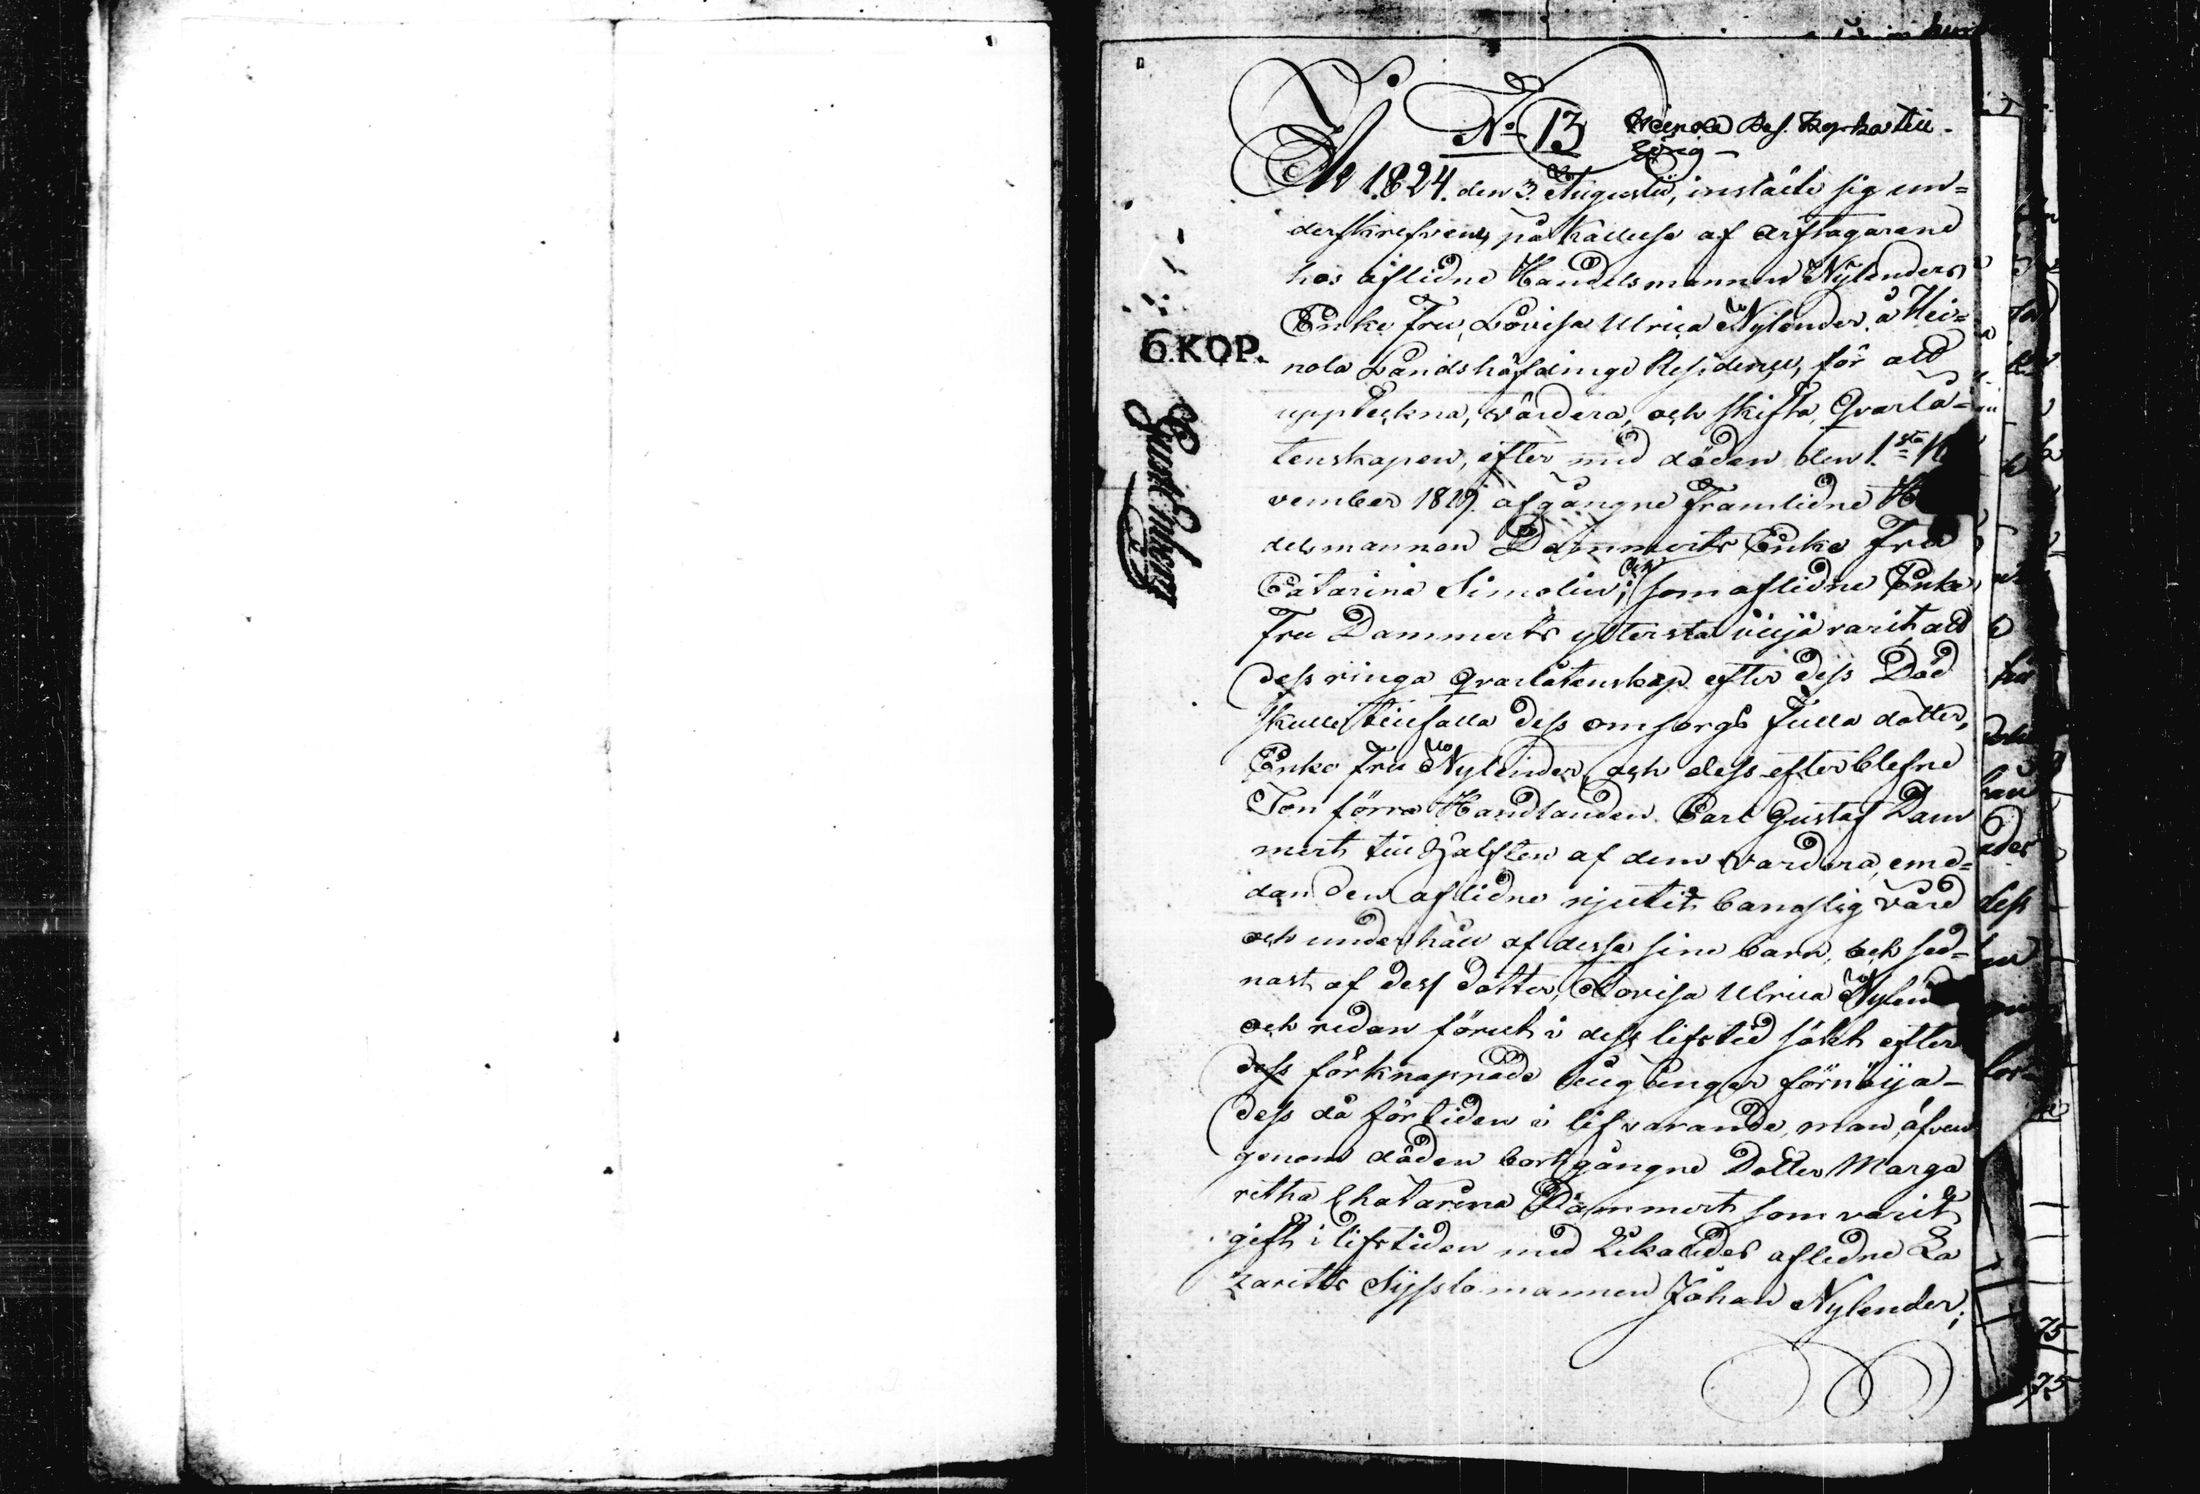 No 13 Heinola Res. Kyrka till-
hörig -
År 1824. den 3. Augustii, instälte sig un=
derskrefvene, på kallelse af arftagarene
hos aflidne Handelsmannen Nylenders
Enka Fru Lovisa Ulrica Nylender å Hei=
nola Landshöfdinge Residence, för att
6.KOP.
uppteckna, värdera, och skifta, Qvarlå=
tenskapen, efter med döden den 1.sta
vember 1819. afgångne Framlidne
delsmannen Dammerts Enka Fru
Catarina Simolin; som aflidne Enke
Fru Dammerts yttersta villja varit att
dess ringa qvarlåtenskap efter dess Död
skulle tillfalla dess omsorgs fulla dotter,
Enke Fru Nylender, och dess efterblefne
Son förra Handlanden Carl Gustaf Dam
mert till Hälften af dem vardera, eme=
dan den aflidne njutit banslig vård
och underhåll af desse sine barn, och sed=
nast af dess dotter, Lovisa Ulrica Nylend
och redan förut i dess lifstid sökt efter
dess förknapnade tillgångar förnöija
dess då förtiden i lifvarande, man, äfven
genom döden bortgångne Dotter Marga
retha Chatarina Dammert som varit
gift i lifstiden med likaledes aflidne La
zaretts Sysslomannen Johan Nylender;
75
75